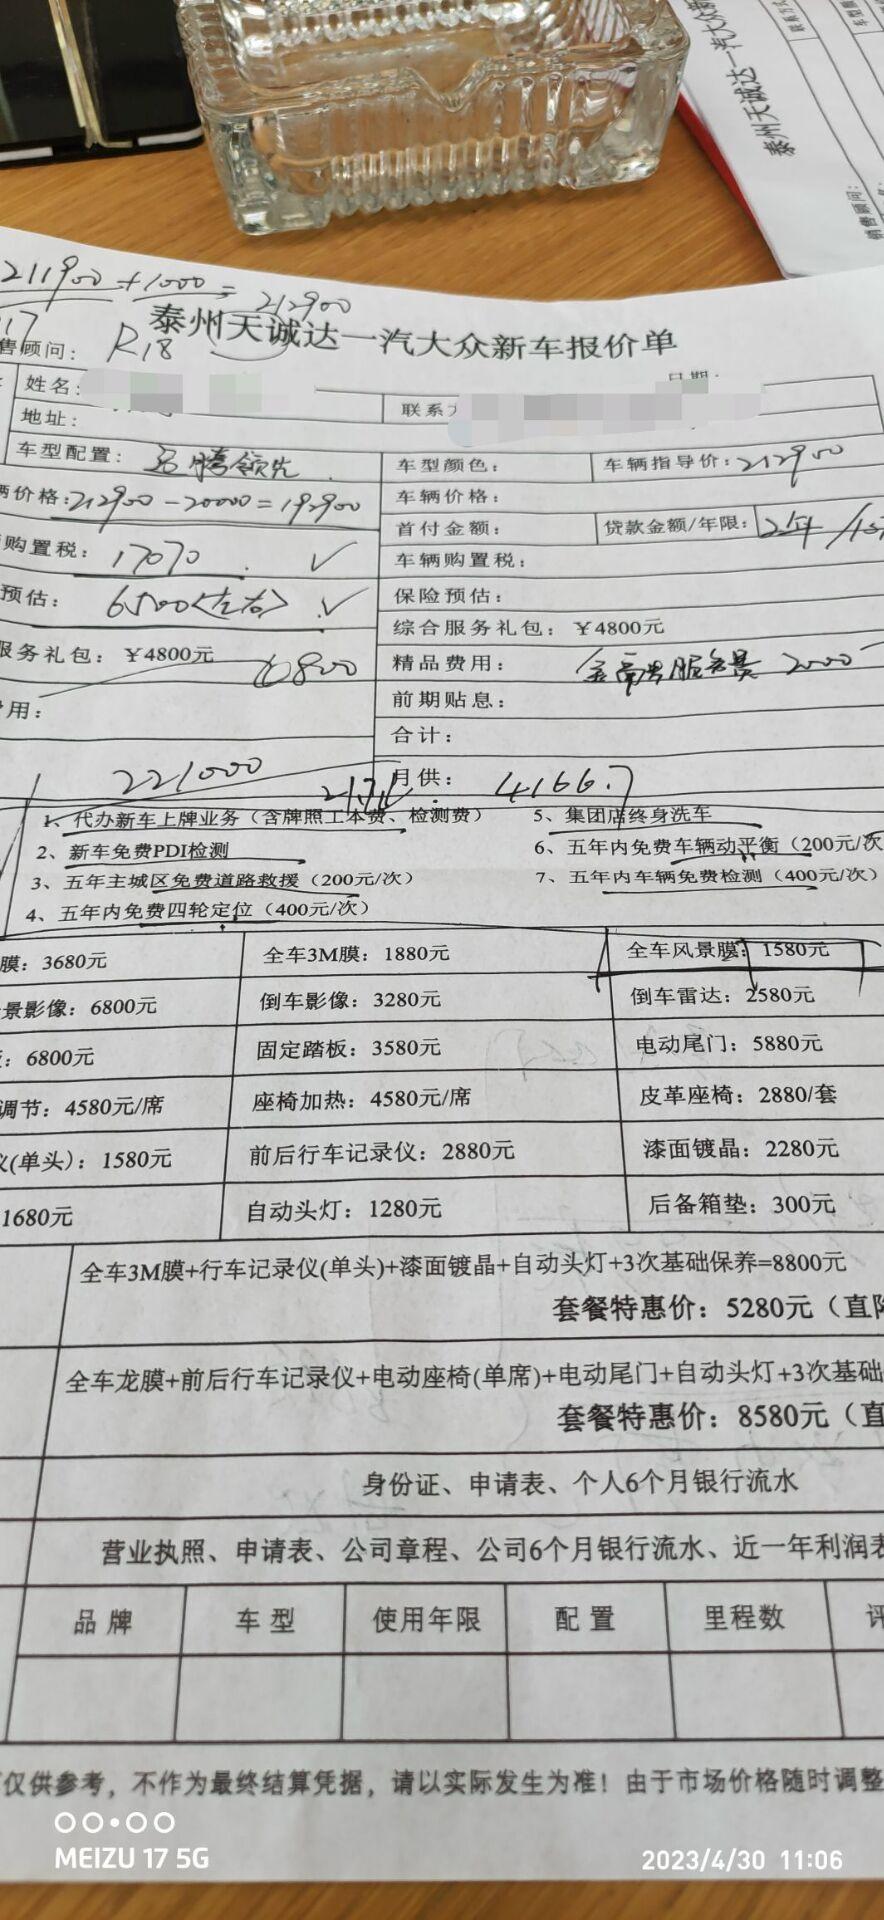 泰州天诚达一汽大众
211900+1000=212900
17
泰州天诚达一汽大众新车报价单
售顾问： R18
姓名：
联系
地址：
车型配置：
领先
车型颜色：
车辆指导价：212900
辆价格：212900-20000=192900
车辆价格：
首付金额：
贷款金额/年限：2年/10万
购置税：17070
车辆购置税：
预估：6500<左右>
保险预估：
服务礼包：￥4800元 800
综合服务礼包：￥4800元
用：
精品费用：
服务费 2000
前期贴息：
合计：
221000
月供： 4166.7
1、代办新车上牌业务（含牌照工本费、检测费）
5、集团店终身洗车
2、新车免费PDI检测
6、五年内免费车辆动平衡（200元/次
3、五年主城区免费道路救援（200元/次）
7、五年内车辆免费检测（400元/次）
4、五年内免费四轮定位（400元/次）
膜：3680元
全车3M膜：1880元
全车风景膜：1580元
景影像：6800元
倒车影像：3280元
倒车雷达：2580元
：6800元
固定踏板：3580元
电动尾门：5880元
调节：4580元/席
座椅加热：4580元/席
皮革座椅：2880/套
仪(单头)：1580元
前后行车记录仪：2880元
漆面镀晶：2280元
1680元
自动头灯：1280元
后备箱垫：300元
全车3M膜+行车记录仪(单头)+漆面镀晶+自动头灯+3次基础保养=8800元
套餐特惠价：5280元（直降
全车龙膜+前后行车记录仪+电动座椅(单席)+电动尾门+自动头灯+3次基础
套餐特惠价：8580元（直
身份证、申请表、个人6个月银行流水
营业执照、申请表、公司章程、公司6个月银行流水、近一年利润表
品 牌
车 型
使用年限
配 置
里程数
评
仅供参考，不作为最终结算凭据，请以实际发生为准！由于市场价格随时调整
MEIZU 17 5G
2023/4/30 11:06